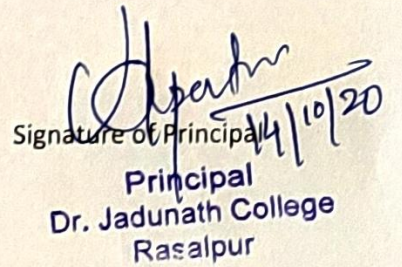 Signature of Principal
14/10/20
Principal
Dr. Jadunath College
Rasalpur